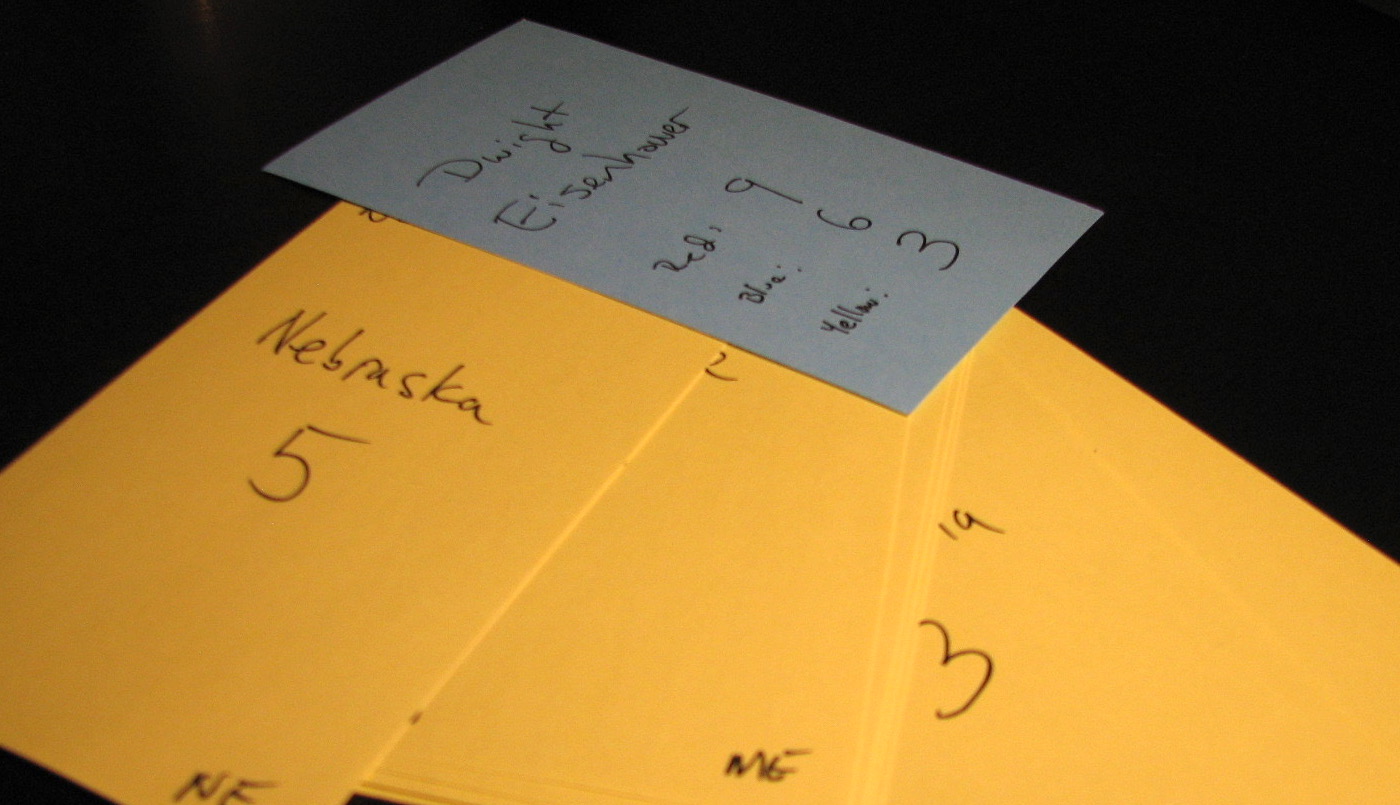 Dwight
Eisenhower
Red: 9
Blue: 6
Yellow: 3
Nebraska
5
NE
2
ME
19
3